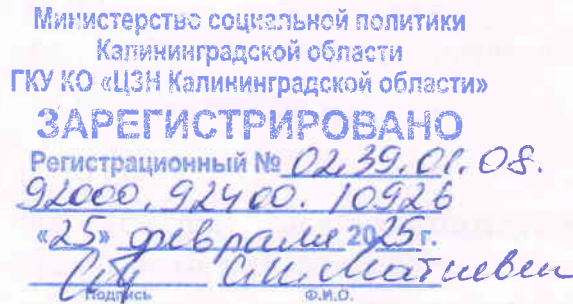 Министерство социальной политики
Калининградской области
ГКУ КО «ЦЗН Калининградской области»
ЗАРЕГИСТРИРОВАНО
Регистрационный № 02.39.01.08.
92000.92400.10926
«25» февраля 2025 г.
С.И. Матиевич
Подпись Ф.И.О.